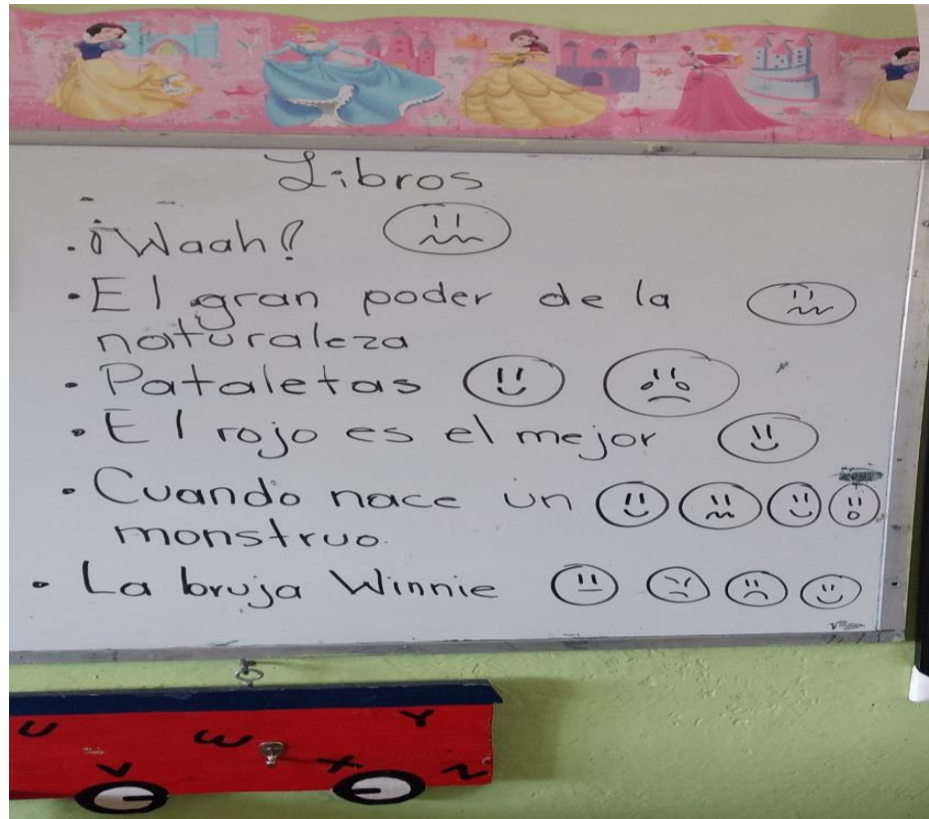 Libros
· ¡Waah!
· El gran poder de la
naturaleza
· Pataletas
· El rojo es el mejor
· Cuando nace un
monstruo.
· La bruja Winnie
U V W X Y Z